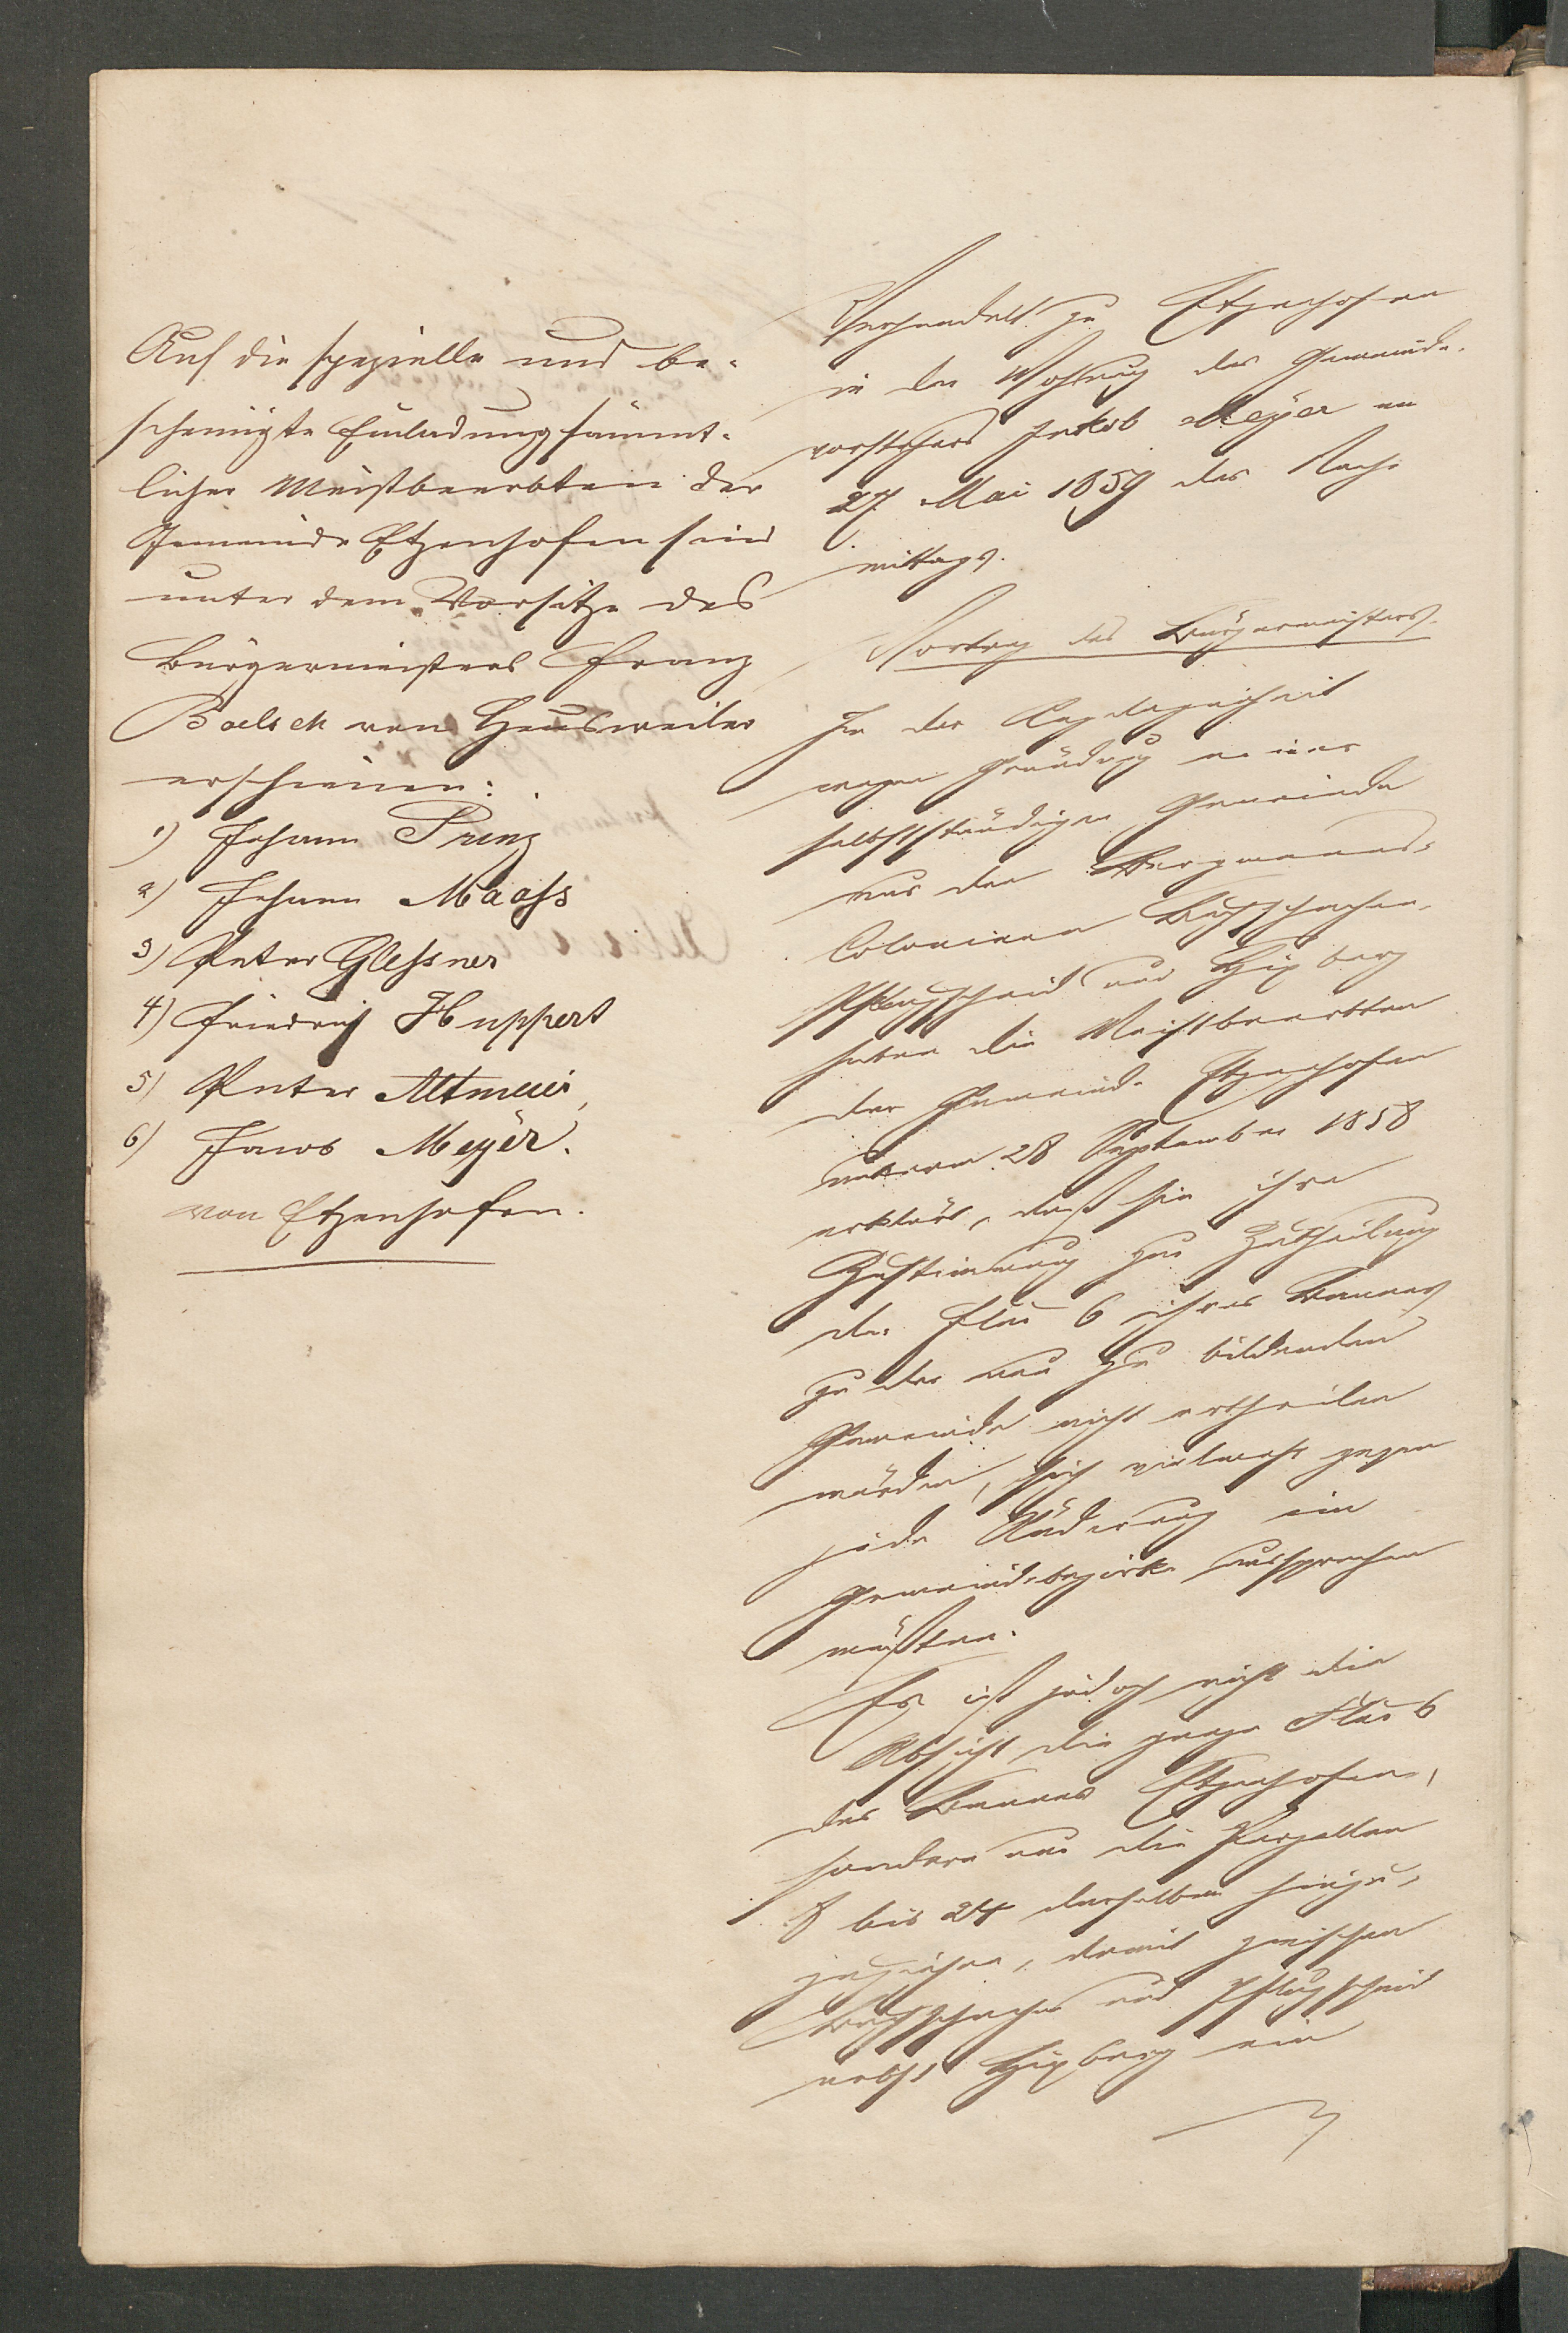 Auf die spezielle und be-
scheinigte Einladung sämmt-
licher Meistbeerbten der
Gemeinde Etzenhofen sind
unter dem Vorsitze des
Bürgermeisters Franz
Boelsch von Heusweiler
erschienen:
1) Johann Prinz
2) Johann Maass
3) Peter Glessner
4) Friedrich Huppert
5) Peter Altmeier,
6) Jacob Meyer.
von Etzenhofen.
Verhandelt zu Etzenhofen
in der Wohnung des Gemeinde-
vorstehers Jakob Meyer am
27. Mai 1859 des Nach-
mittags.
Vortrag des Bürgermeisters.
In der Angelegenheit
wegen Gründung einer
selbstständigen Gemeinde
aus den Bergmanns-
Colonieen Buchschachen,
Pflugscheid und Hixberg
haben die Meistbeerbten
der Gemeinde Etzenhofen
unterm 28 September 1858
erklärt, daß sie ihre
Zustimmung zur Zutheilung
der Flur 6 ihres Bannes
zu der neu zu bildenden
Gemeinde nicht ertheilen
würden, sich vielmehr gegen
jede Änderung im
Gemeindebezirke aussprechen
müßten.
Es ist jedoch nicht die
Absicht die ganze Flur 6
des Bannes Etzenhofen,
sondern nur die Parzellen
1 bis 24 derselben hinzu-
zuziehen, damit zwischen
Buchschachen und Pflugscheid
nebst Hixberg ein